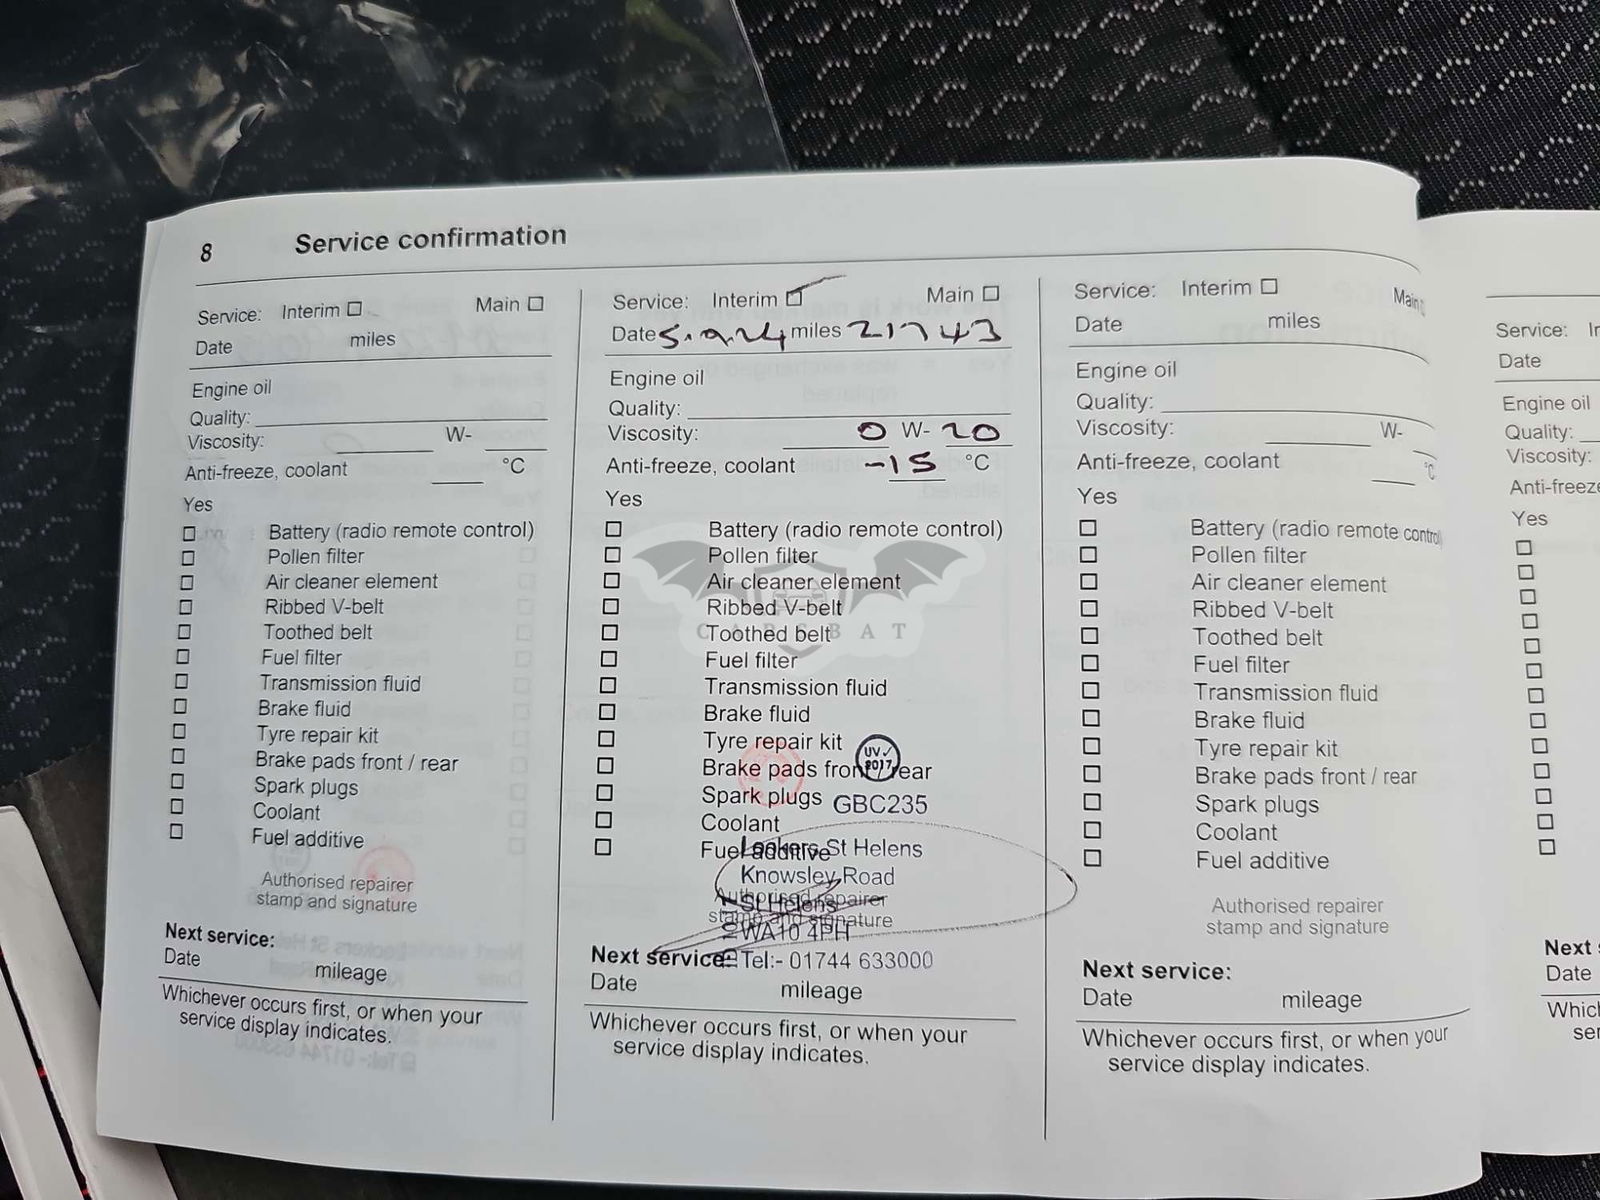 8 Service confirmation
Service: Interim Main
Date miles
Engine oil
Quality:
Viscosity: W-
Anti-freeze, coolant °C
Yes
Battery (radio remote control)
Pollen filter
Air cleaner element
Ribbed V-belt
Toothed belt
Fuel filter
Transmission fluid
Brake fluid
Tyre repair kit
Brake pads front / rear
Spark plugs
Coolant
Fuel additive
Authorised repairer
stamp and signature
Next service:
Date mileage
Whichever occurs first, or when your
service display indicates.
Service: Interim Main
Date 5.9.24 miles 21743
Engine oil
Quality:
Viscosity: 0 W- 20
Anti-freeze, coolant -15 °C
Yes
Battery (radio remote control)
Pollen filter
Air cleaner element
Ribbed V-belt
CARSBAT
Toothed belt
Fuel filter
Transmission fluid
Brake fluid
Tyre repair kit
UV✓
2017
Brake pads front / rear
Spark plugs GBC235
Coolant
Fuel additive
Lookers St Helens
Knowsley Road
Authorised repairer
St Helens
stamp and signature
WA10 4PH
Next service: Tel:- 01744 633000
Date mileage
Whichever occurs first, or when your
service display indicates.
Service: Interim Main
Date miles
Engine oil
Quality:
Viscosity: W-
Anti-freeze, coolant °C
Yes
Battery (radio remote control
Pollen filter
Air cleaner element
Ribbed V-belt
Toothed belt
Fuel filter
Transmission fluid
Brake fluid
Tyre repair kit
Brake pads front / rear
Spark plugs
Coolant
Fuel additive
Authorised repairer
stamp and signature
Next service:
Date mileage
Whichever occurs first, or when your
service display indicates.
Service: Ir
Date
Engine oil
Quality:
Viscosity:
Anti-freeze
Yes
Next
Date
Whic
se